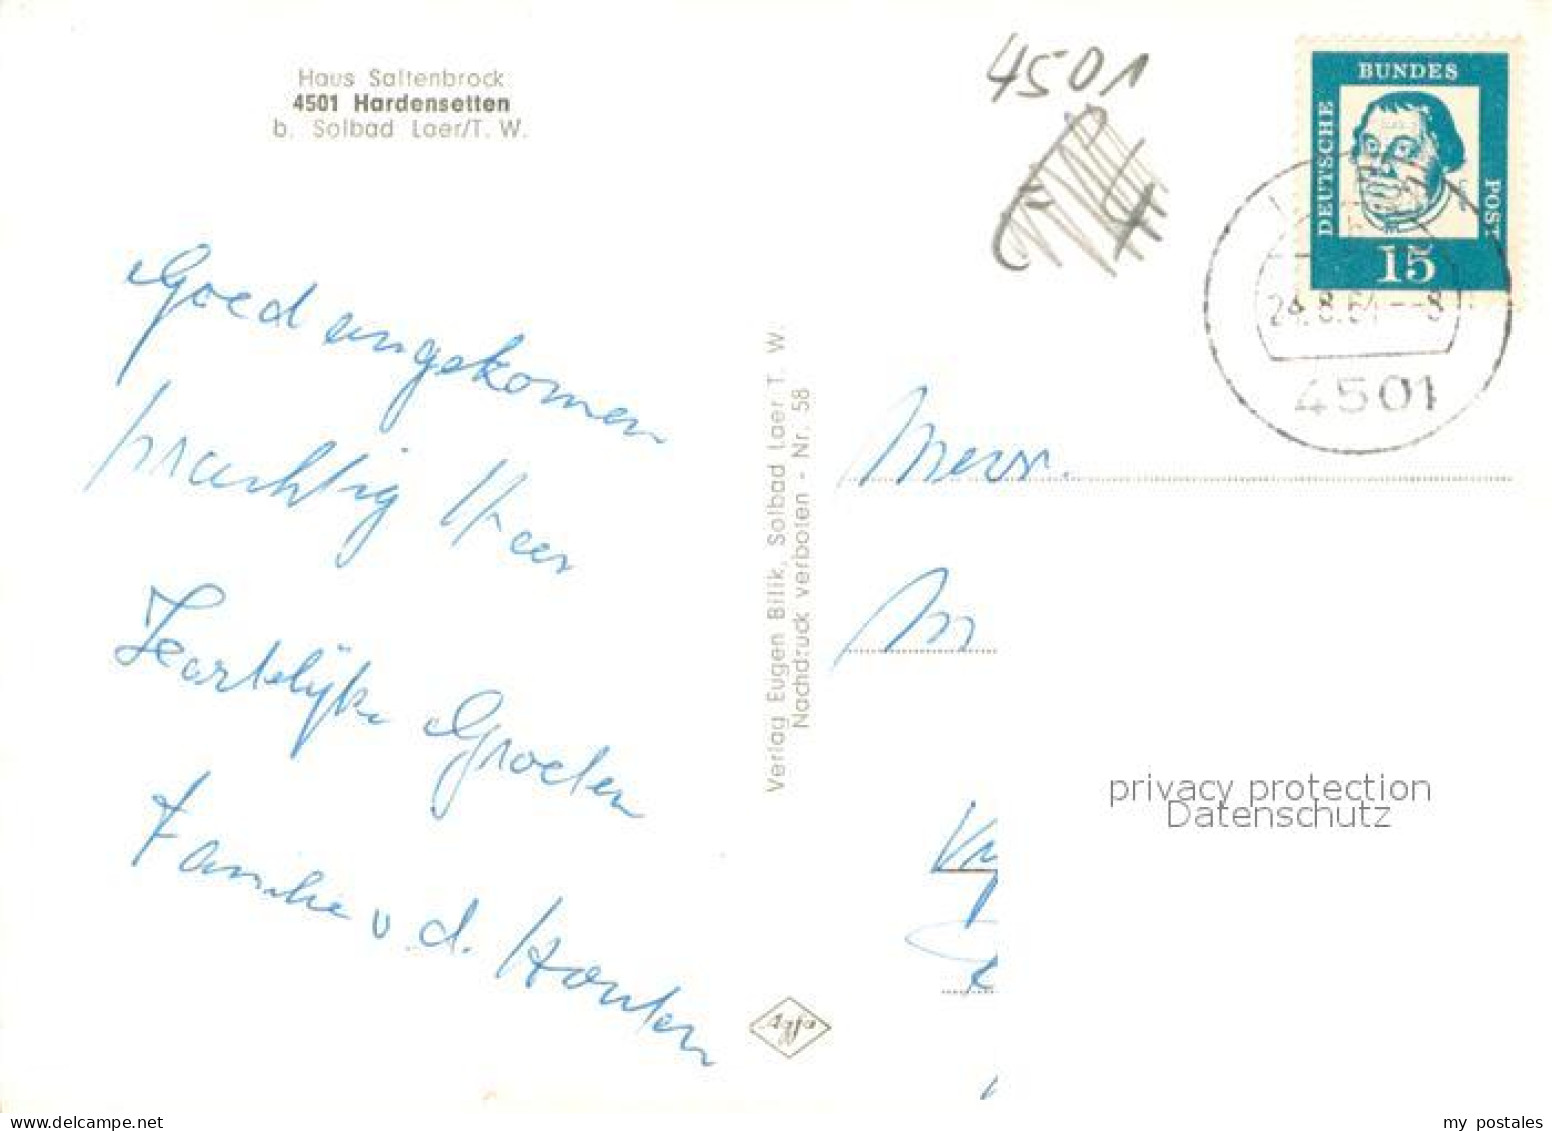 Haus Saltenbrock
4501 Hardensetten
b. Solbad Laer/T. W.
4501
BUNDES
DEUTSCHE
POST
15
24.8.64--8
4501
Goed angekomen
prachtig Weer
Hartelijke Groeten
Familie v.d. Houten
Verlag Eugen Bilik, Solbad Laer T. W.
Nachdruck verboten - Nr. 58
Agfa
privacy protection
Datenschutz
www.delcampe.net
my_postales